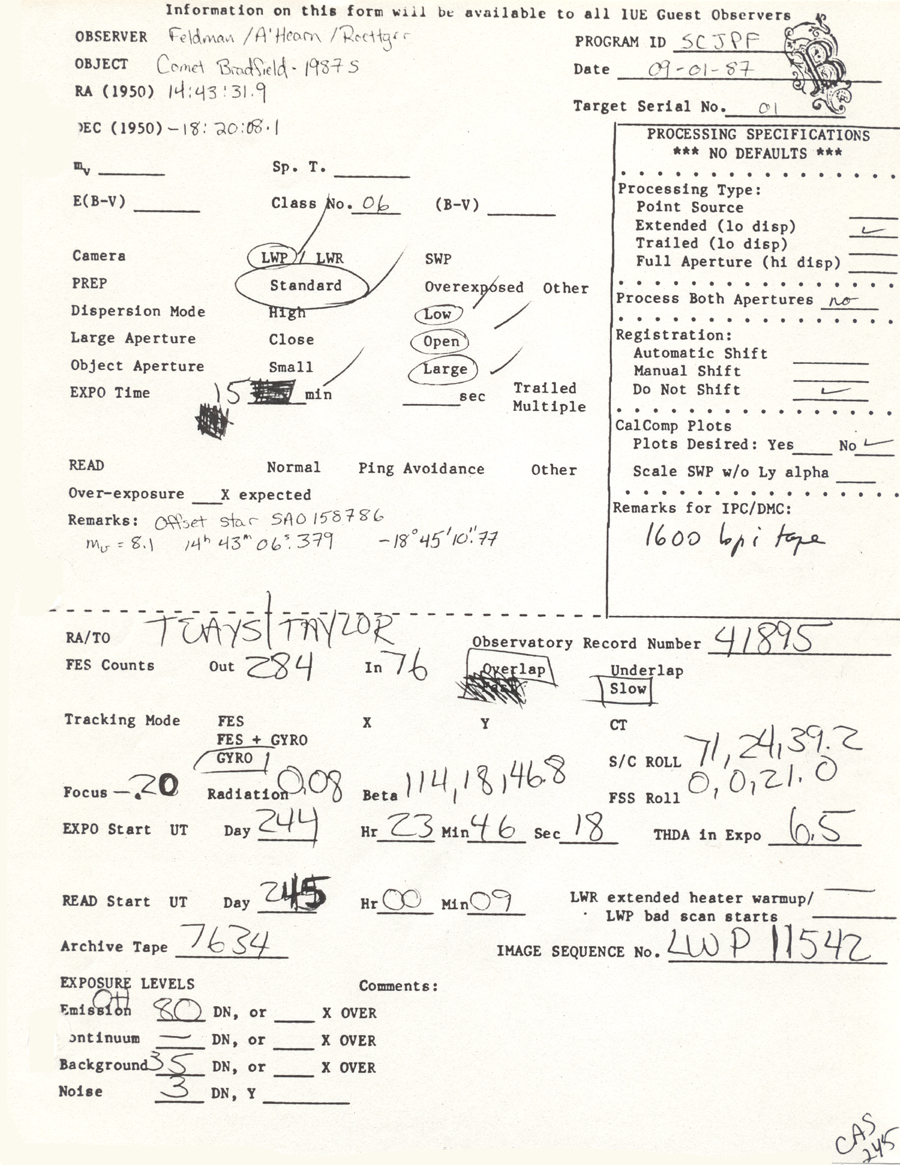 Information on this form will be available to all IUE Guest Observers
OBSERVER Feldman / A'Hearn / Roettger
PROGRAM ID SCJPF
OBJECT Comet Bradfield - 1987 S
Date 09-01-87
RA (1950) 14:43:31.9
Target Serial No. 01
DEC (1950) -18:20:08.1
PROCESSING SPECIFICATIONS
*** NO DEFAULTS ***
m_v ______ Sp. T. ______
E(B-V) ______ Class No. 06 (B-V) ______
Processing Type:
Point Source
Extended (lo disp) ✓
Trailed (lo disp)
Full Aperture (hi disp)
Process Both Apertures no
Registration:
Automatic Shift
Manual Shift
Do Not Shift ✓
CalComp Plots
Plots Desired: Yes___ No ✓
Scale SWP w/o Ly alpha
Remarks for IPC/DMC:
1600 bpi tape
Camera LWP / LWR SWP
PREP Standard Overexposed Other
Dispersion Mode High Low
Large Aperture Close Open
Object Aperture Small Large
EXPO Time 15 min ______sec Trailed
Multiple
READ Normal Ping Avoidance Other
Over-exposure ___X expected
Remarks: Offset star SAO 158786
m_v = 8.1 14h 43m 06s.379 -18°45'10".77
RA/TO TEAYS / TAYLOR
Observatory Record Number 41895
FES Counts Out 284 In 76 Overlap Underlap
Slow
Tracking Mode FES X Y CT
FES + GYRO
GYRO
S/C ROLL 71, 24, 39.2
Focus -.20 Radiation 0.08 Beta 114, 18, 46.8 FSS Roll 0, 0, 21.0
EXPO Start UT Day 244 Hr 23 Min 46 Sec 18 THDA in Expo 6.5
READ Start UT Day 245 Hr 00 Min 09 LWR extended heater warmup/
LWP bad scan starts
Archive Tape 7634 IMAGE SEQUENCE No. LWP 11542
EXPOSURE LEVELS Comments:
OH
Emission 80 DN, or ___ X OVER
ontinuum — DN, or ___ X OVER
Background 35 DN, or ___ X OVER
Noise 3 DN, Y ______
CAS
245